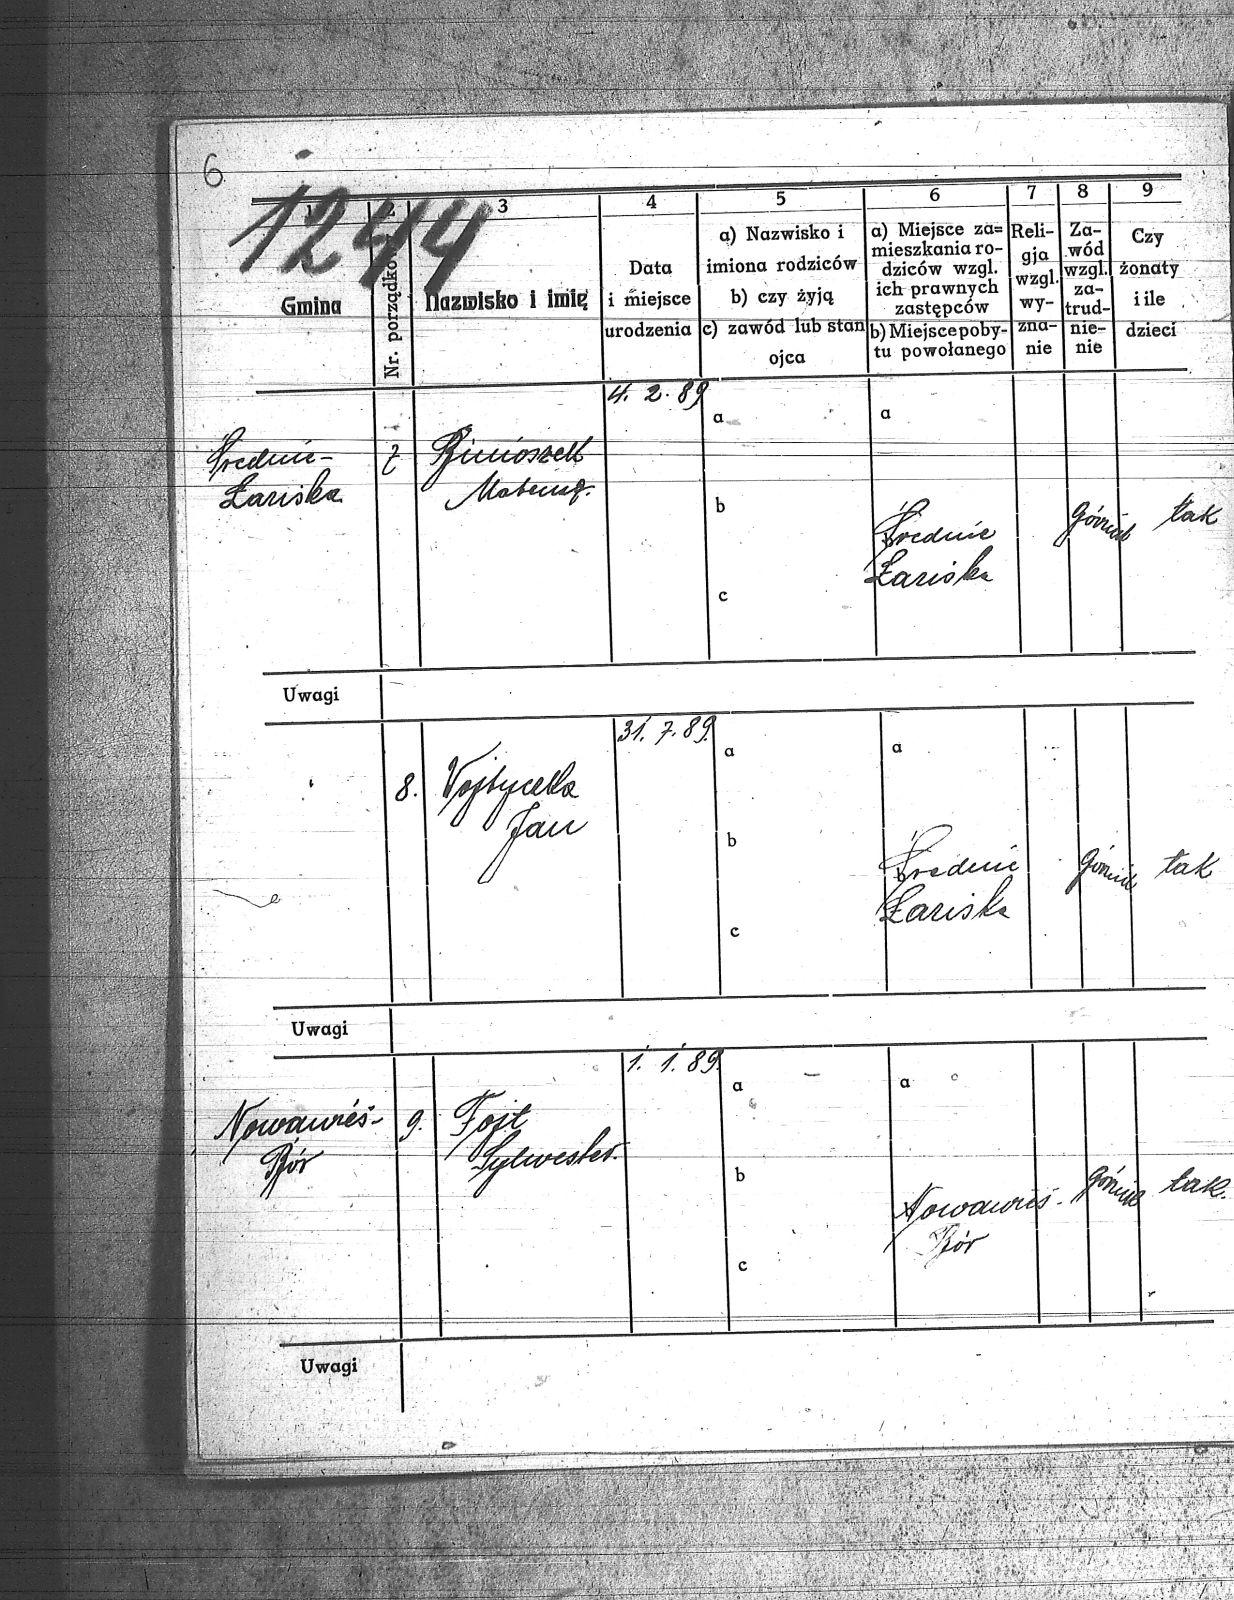 6
1244
1
2
3
4
5
6
7
8
9
Gmina
Nr. porządko
Nazwisko i imię
Data
i miejsce
urodzenia
a) Nazwisko i
imiona rodziców
b) czy żyją
c) zawód lub stan
ojca
a) Miejsce za=
mieszkania ro-
dziców wzgl.
ich prawnych
zastępców
b) Miejsce poby-
tu powołanego
Reli-
gja
wzgl.
wy-
zna-
nie
Za-
wód
wzgl.
za-
trud-
nie-
nie
Czy
żonaty
i ile
dzieci
4. 2. 89
a
a
Średnie-
Łaziska
7
b
b
Średnie
Łaziska
górnik
tak
c
Uwagi
31. 7. 89.
a
a
8.
Jan
b
b
Średnie
Łaziska
górnik
tak
c
Uwagi
1. 1. 89.
a
a
Nowawieś-
Bór
9.
Fojt
Sylwester.
b
Nowawieś-
Bór
górnik
tak.
c
Uwagi